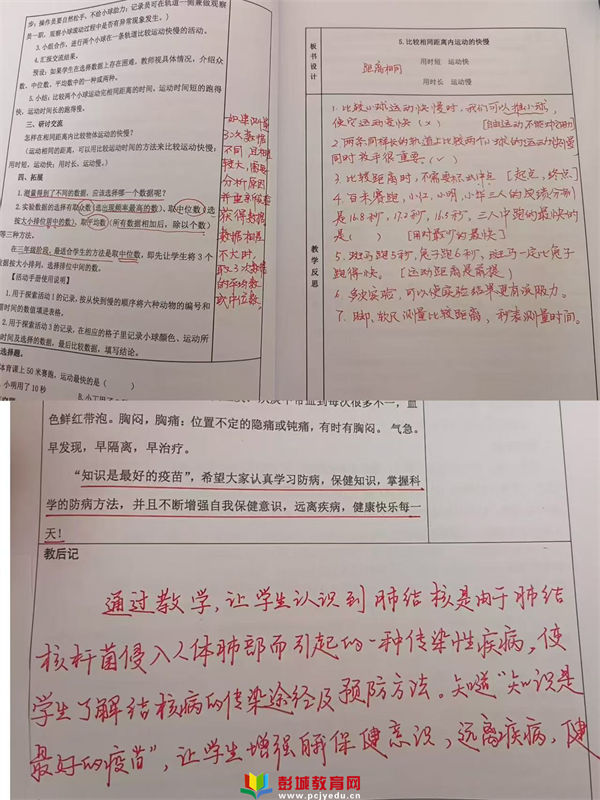 步：操作员要自然松手、不给小球助力；记录员可在轨道一侧兼做观察
员一职，观察小球滚动过程中是否有异常现象发生。）
3.小组合作，进行两个小球在一条轨道比较运动快慢的活动。
4.汇报交流结果。
预设：如果学生在选择数据上存在困难，教师视具体情况，介绍众
数、中位数、平均数中的一种或两种。
5.小结：比较两个小球运动完相同距离的时间，运动时间短的跑得
快，运动时间长的跑得慢。
三、研讨交流
怎样在相同距离内比较物体运动的快慢？
（运动相同的距离，可以用比较运动时间的方法来比较运动快慢：
用时短，运动快；用时长，运动慢。）
四、拓展
1.测量得到了不同的数据，应该选择哪一个数据呢？
2.实验数据的选择有取众数（选出现频率最高的数）、取中位数（选
按大小排位居中的数）、取平均数（所有数据相加后，除以个数）
等三种方法。
在三年级阶段，最适合学生的方法是取中位数，即先让学生将 3 个
数据按大小排列，选择排位中间的数。
【活动手册使用说明】
1.用于探索活动 1 的记录，按从快到慢的顺序将六种动物的编号和
时间的数值填进表格。
2.用于探索活动 3 的记录，在相应的格子里记录小球颜色、运动所
时间及选择的数据，最后比较数据，填写结论。
选择题。
体育课上 50 米赛跑，运动最快的是（ ）
小明用了 10 秒
如果测量
3次数据
不同，且相
较大，需要
分析原因
并重新
获得数据
数据相差
不大时，
取3次数据
的平均数
或中位数。
板书设计
5.比较相同距离内运动的快慢
用时短 运动快
距离相同
用时长 运动慢
教学反思
1.比较小球运动快慢时，我们可以推小球，
使它运动更快（×）
2.两条同样长的轨道上比较两个小球的运动快慢
同时放手很重要。（✓）
3.比较距离时，不需要标出中点 [起点，终点]
4.百米赛跑，小红，小明，小华三人的成绩分别
是16.8秒，17.2秒，16.5秒，三人中跑的最快的
是（ ） [用时最少的最快]
5.斑马跑5秒，兔子跑6秒，斑马一定比兔子
跑得快。 [运动距离是前提]
6.多次实验，可以使实验结果更有说服力。
7.脚，软尺测量比较距离，秒表测量时间。
色鲜红带泡。胸闷，胸痛：位置不定的隐痛或钝痛，有时有胸闷。 气急。
早发现，早隔离，早治疗。
“知识是最好的疫苗”，希望大家认真学习防病，保健知识，掌握科
学的防病方法，并且不断增强自我保健意识，远离疾病，健康快乐每一
天！
教后记
通过教学，让学生认识到肺结核是由于肺结
核杆菌侵入人体肺部而引起的一种传染性疾病，使
学生了解结核病的传染途经及预防方法。知道“知识是
最好的疫苗”，让学生增强自我保健意识，远离疾病，健
彭城教育网
www.pcjyedu.cn